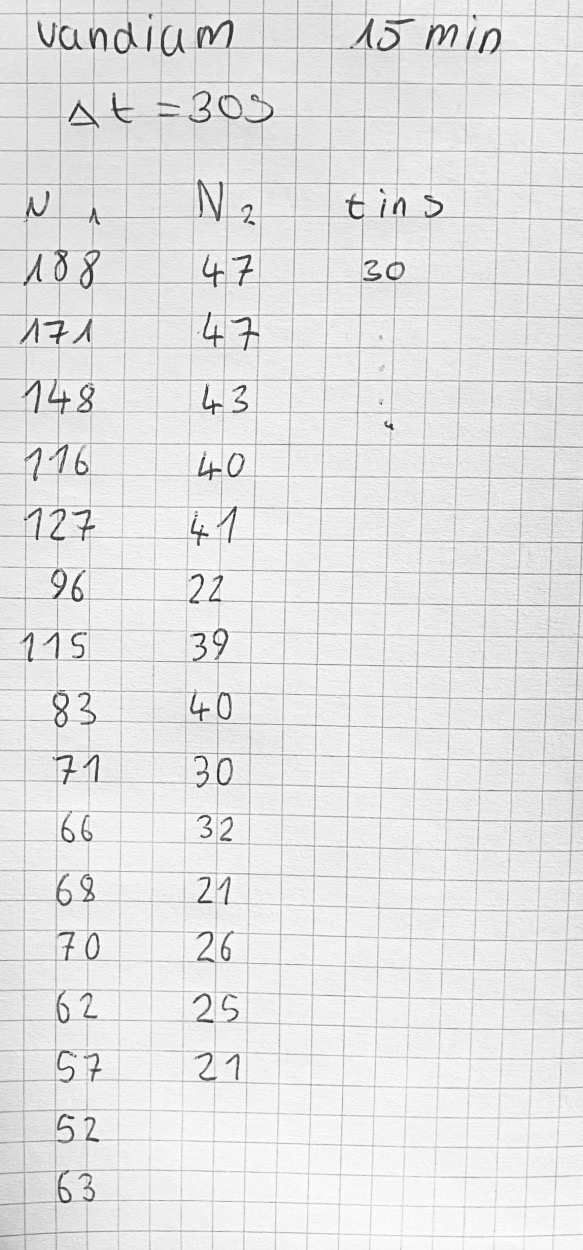 vandium 15 min
Δt = 30s
N 1 N 2 t in s
188 47 30
171 47 .
148 43 .
116 40
127 41
96 22
115 39
83 40
71 30
66 32
68 21
70 26
62 25
57 21
52
63